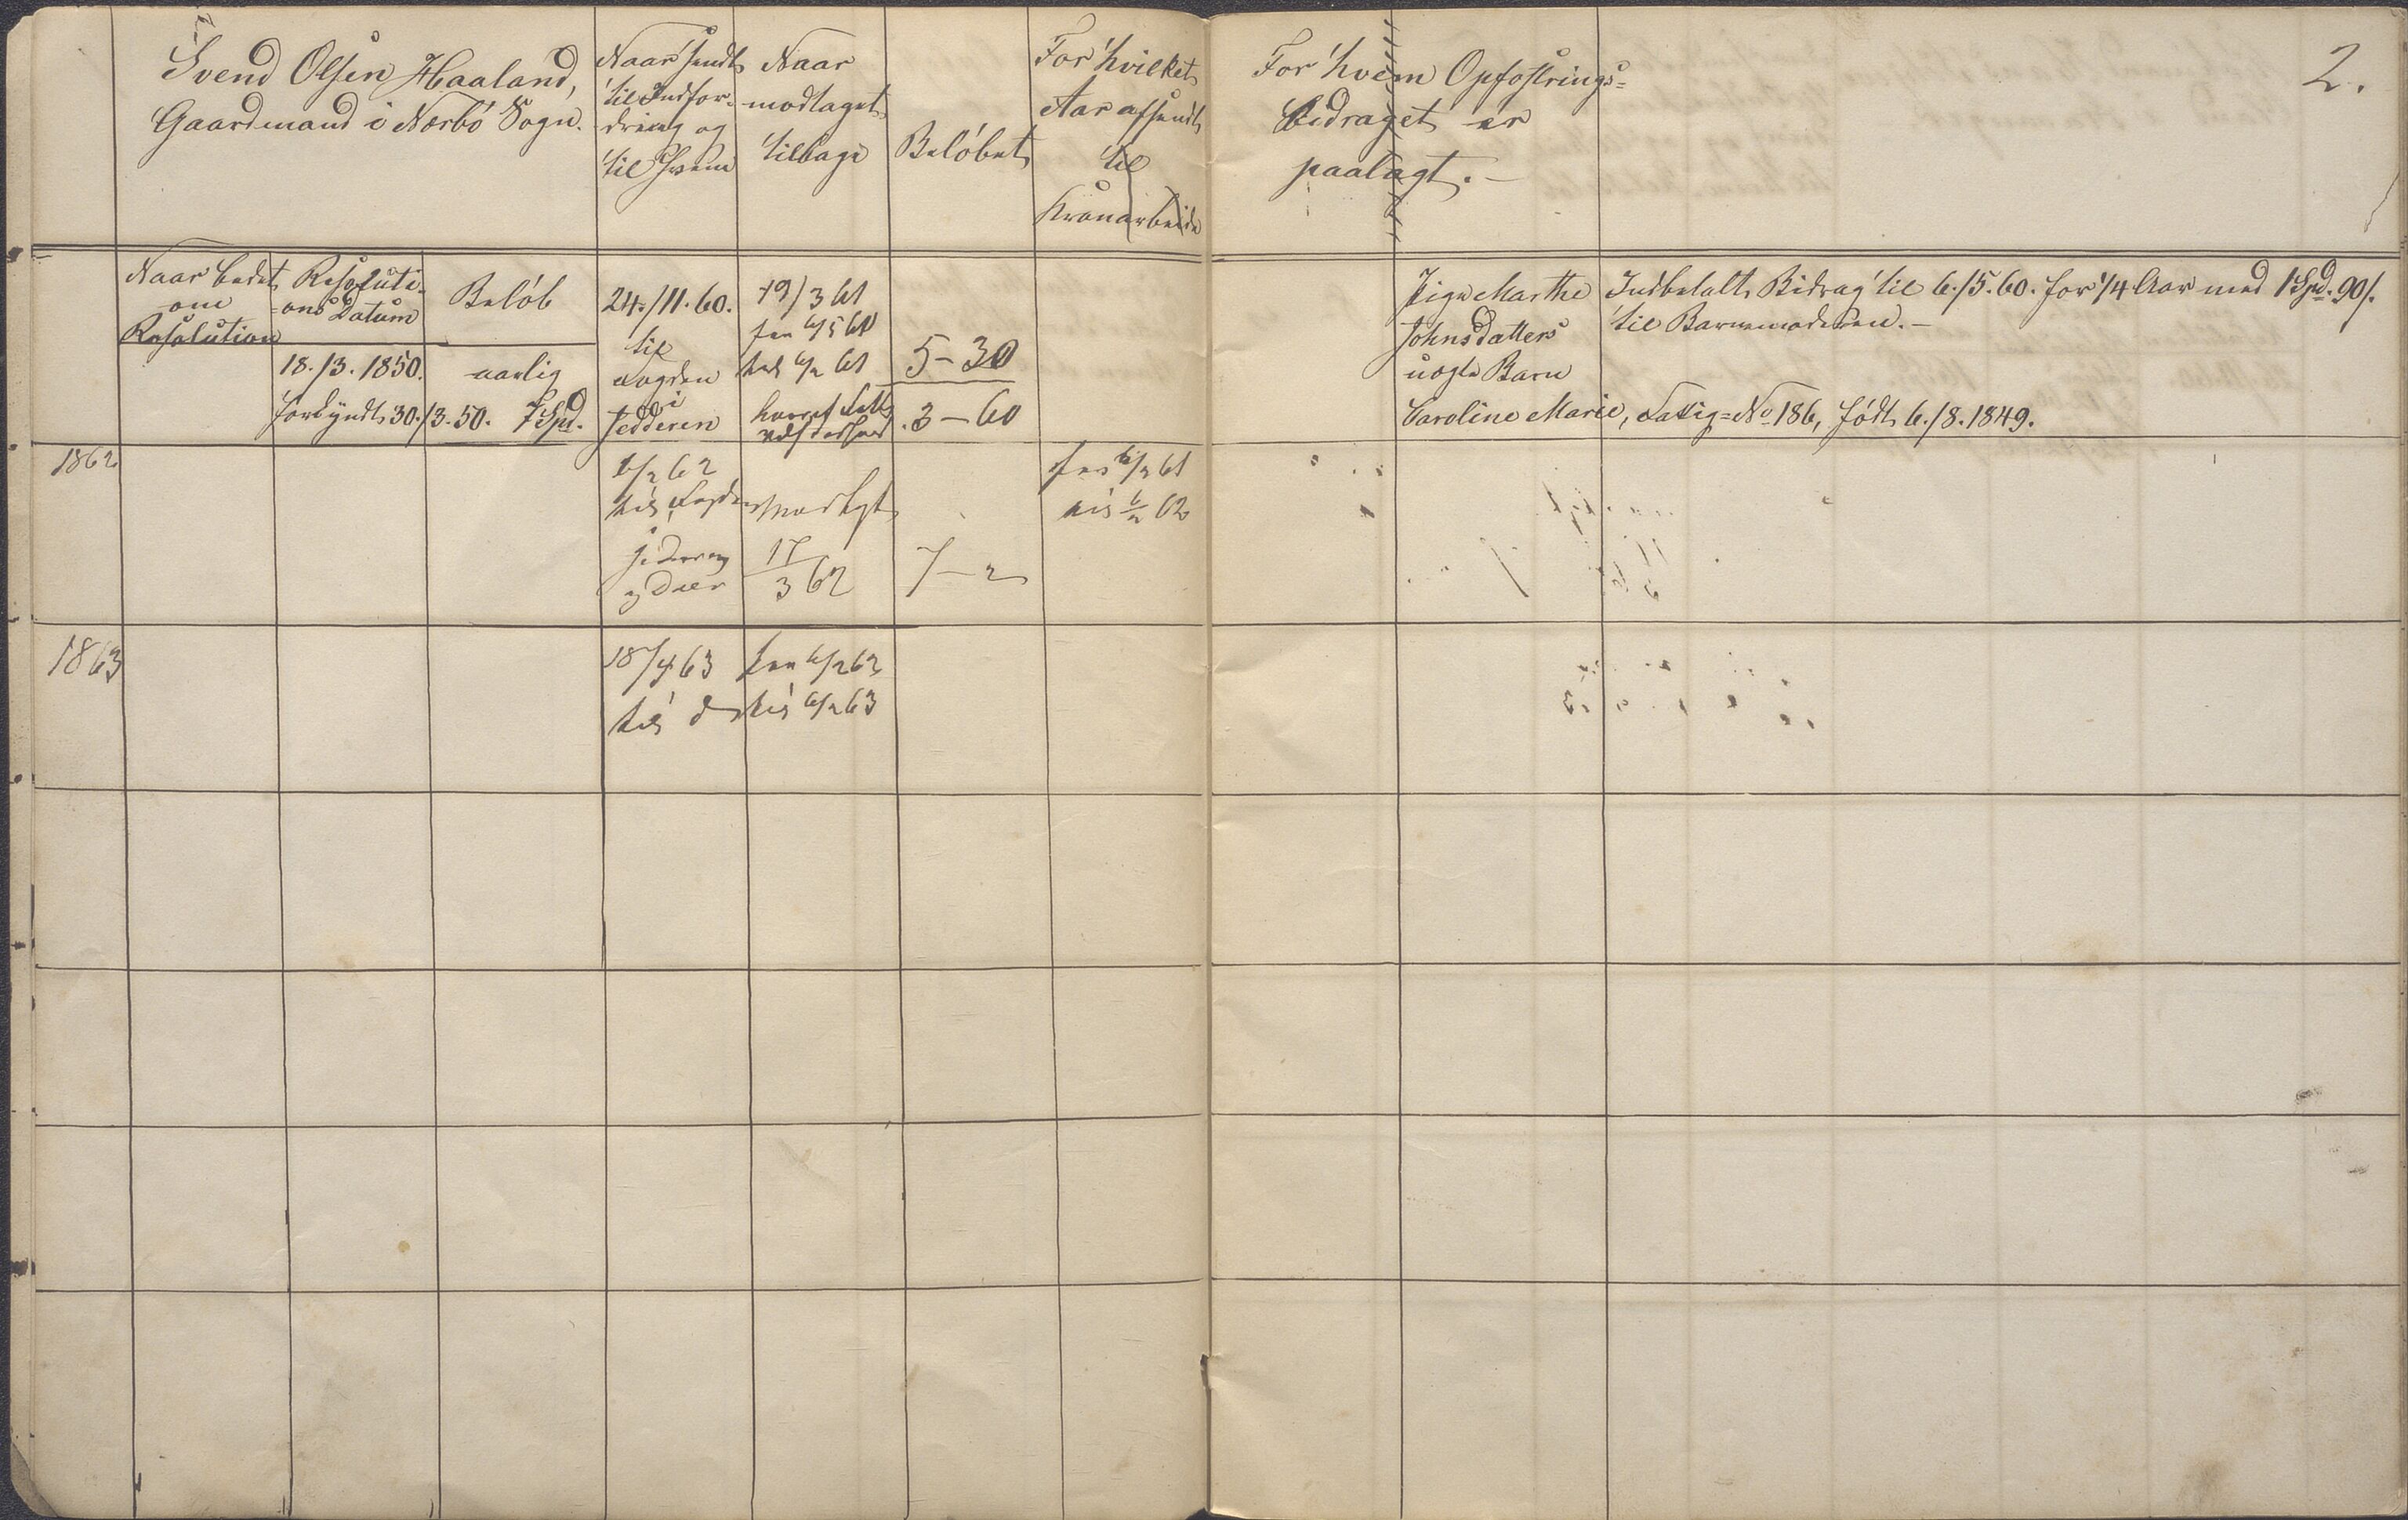 2.
Svend Olsen Haaland,
Gaardmand i Nærbö Sogn.
Naar sendt
til Indfor-
dring og
til Hvem
Naar
modtaget
tilbage
Belöbet
For hvilket
Aar afsendt
til
Kronarbeide
For hvem Opfostrings-
bidraget er
paalagt.-
Naar bedet
om
Resolution
Resoluti-
ons Datum
Belöb
18./3. 1850.
aarlig
forkyndt 30./3.50. 7 Spd.
24./11.60.
til
Fogden
i
Jedderen
19/3 61
fra 6/5 60
til 6/2 61
5-30
3-60
Pige Marthe
Johnsdatters
uægte Barn
Caroline Marie, Fattig=No 186, födt 6./8.1849.
Indbetalt Bidrag til 6./5.60. for 1/4 Aar med 1 Spd. 90/.
til Barnemoderen.-
1862
6/2 62
til Fogden
modtgt
17/3 62
7-2
fra 6/2 61
til 6/2 62
1863
18/4 63
til d
fra 6/2 62
til 6/2 63